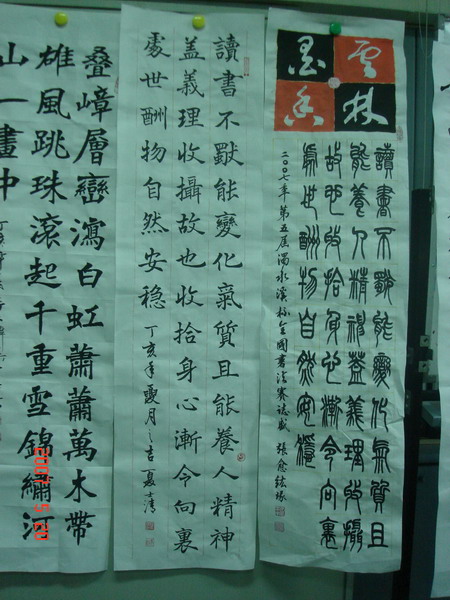 雲林
墨香
讀書不厭能變化氣質且
能養人精神蓋義理收攝
故也收拾身心漸今向裏
處世酬物自然安穩
二00七年第五屆濁水溪杯全國書法賽誌盛 張
讀書不厭能變化氣質且能養人精神
蓋義理收攝故也收拾身心漸今向裏
處世酬物自然安穩 丁亥年 月之吉夏
叠嶂層巒瀉白虹蕭蕭萬木帶
雄風跳珠滾起千重雪錦繡河
山一畫中
2007 5